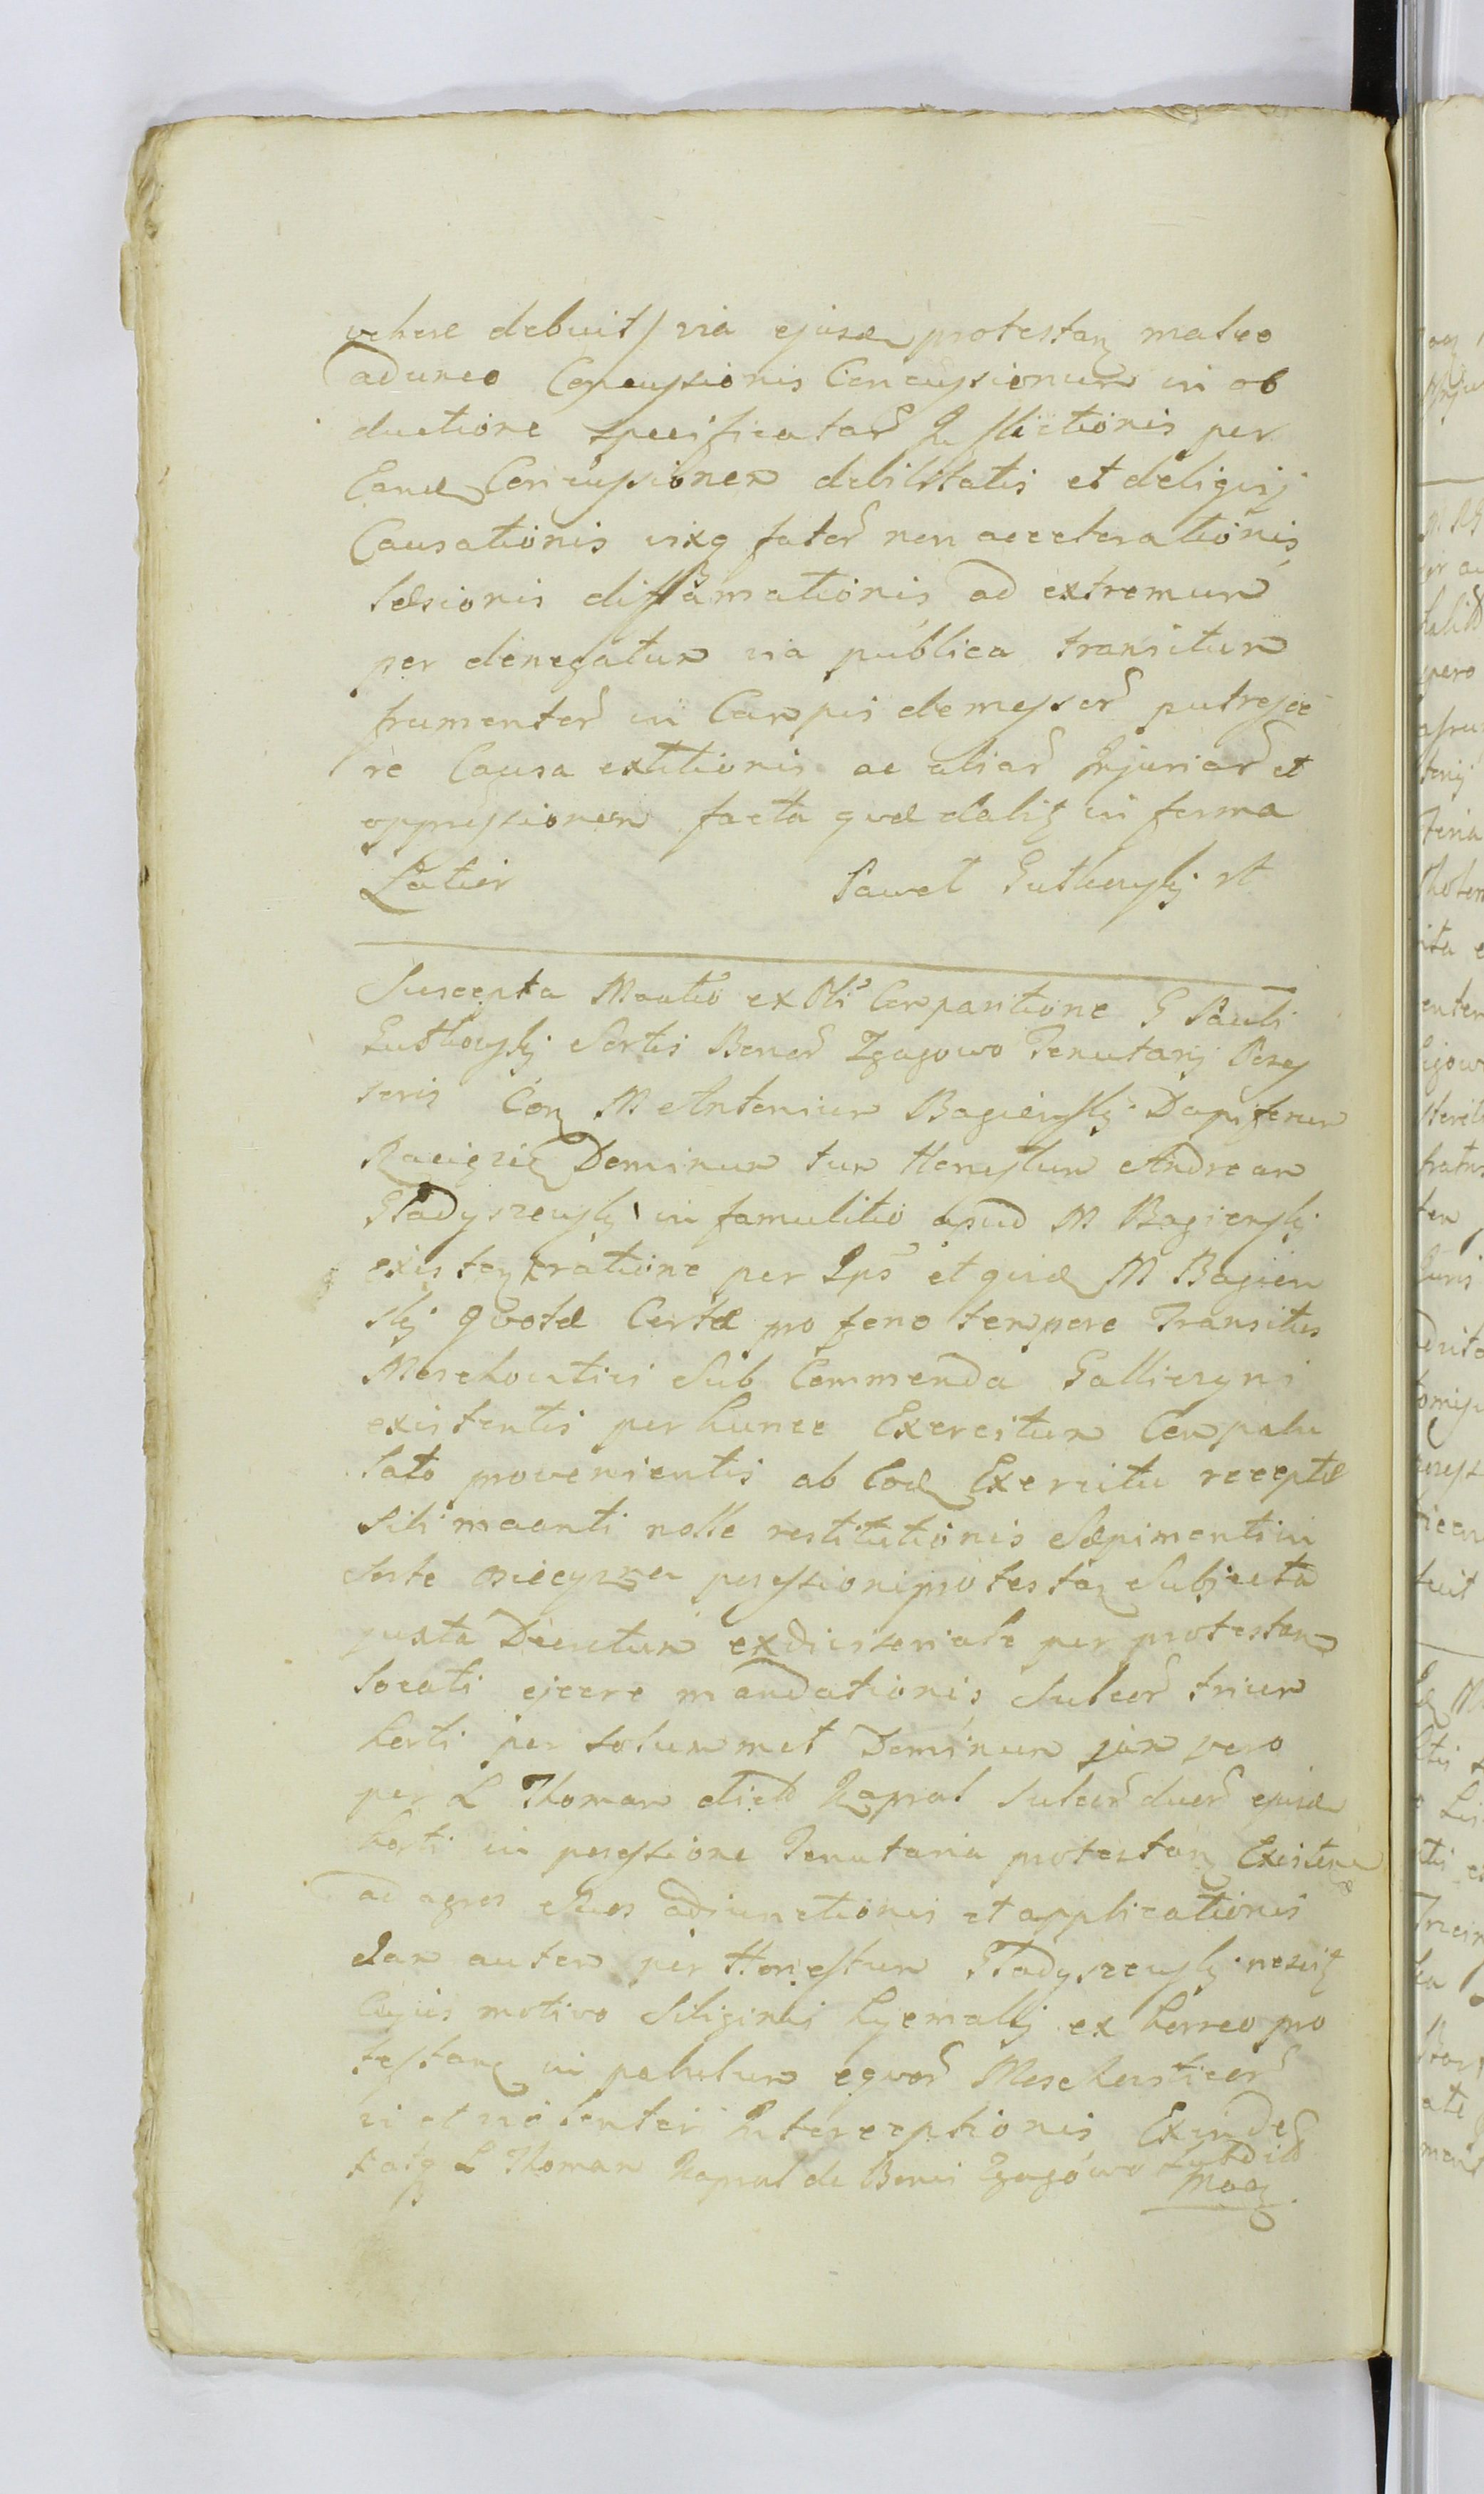 vehere debuit / via ejusd protestan maleo
aduneo Concussionis Concussionum in ob
ductione specificatar Inflictionis per
Eand Concussionem debilitatis et deliquij
Causationis vixq fator non accelerationis
læsionis diffamationis ad extremum
per denegatum via publica transitum
frumentor in Campis demessor putresce
re Causa extitionis ac aliar Injuriar et
oppressionem facta quæ daliz in forma
Latior Paweł Gutkowskj

Suscepta Mantio ex Obli Comparitione G Pauli
Gutkowskj Sortis Bonor Zgagowo Tenutarij Posses
soris Con M Antonium Bagieńskj Dapiferum
Raciąziē Dominum tum Honestum Andream
Gładyszewskj in famulitio apud M Bagienskj
existen ratione per Ips et quid M Bagien
skj quotæ Certæ pro feno tempore Transitus
Moschovitici Sub Commenda Galliczyni
existentis per hunce Exercitum Conpabu
lato provenientis ab Eod Exercitu receptæ
Sibi nolle restitutionis Sæpimenti in
Sorte possessioni protestan Subjecta
juxta Decretum exdivisoriale per protestan
locati ejcere mandationis Sulcor trium
horti per solummet Dominum jam vero
per L Thomam dict Kapral Sulcor duor ejusd
horti in possessione Tenutaria protestan Existen
ad agros Suos adjunctionis et applicationis
clam autem per Honestum Gładyszewskj nescit
Cujus motivo Siliginis hyemalis ex horreo pro
testan in pabulum equor Moschoviticor
vi et violenter Interceptionis Exinde
fatq L Thomam Kapral de Bonis Zgagowo Subdit
Mag